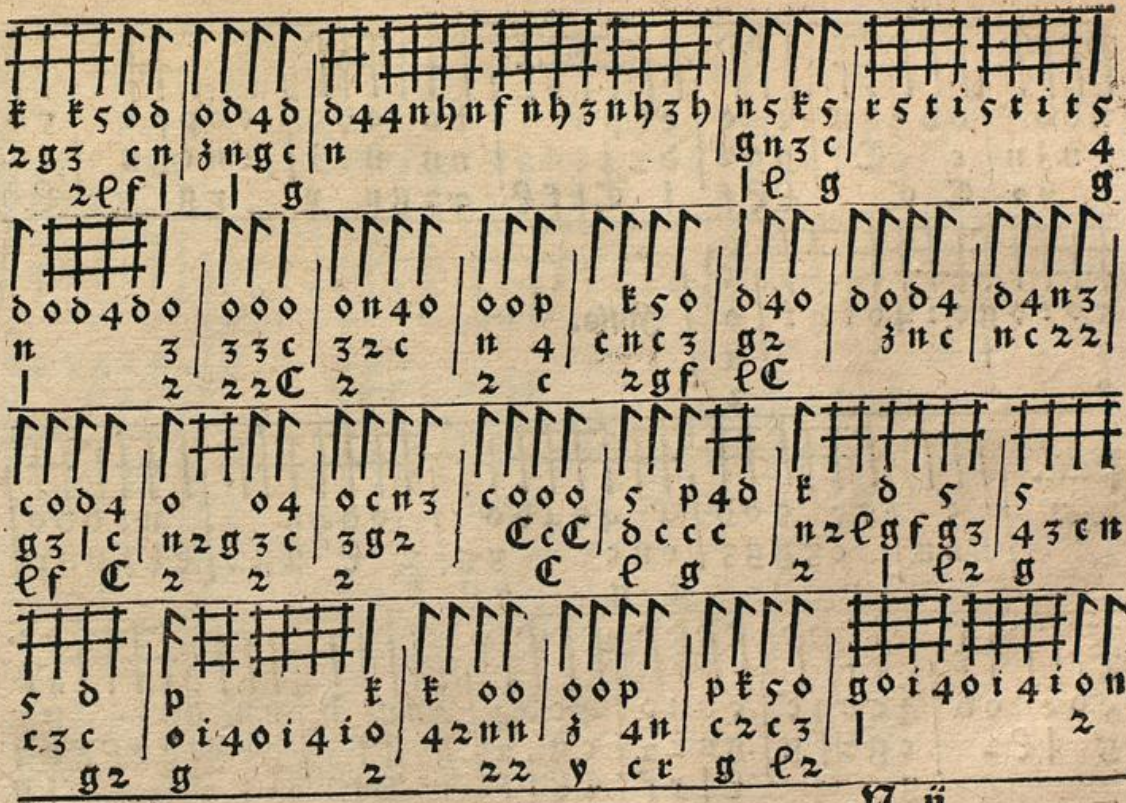 k k 5 o d | o d 4 d | d 4 4 n h n f n h 3 n h 3 h | n 5 k 5 | r 5 t i 5 t i t 5
2 g 3 c n | ʒ n g c | n | g n 3 c | 4
2 ℓ f l | l g | l ℓ g | g
d o d 4 d o | o o o | o n 4 o | o o p | k 5 o | d 4 o | d o d 4 | d 4 n 3
n 3 | 3 3 c | 3 2 c | n 4 | c n c 3 | g 2 | ʒ n c | n c 2 2
l 2 | 2 2 C | 2 | 2 c | 2 g f | ℓ C
c o d 4 | o o 4 | o c n 3 | c o o o | 5 p 4 d | k d 5 | 5
g 3 l c | n 2 g 3 c | 3 g 2 | C c C | d c c c | n 2 ℓ g f g 3 | 4 3 c n
ℓ f C | 2 2 | 2 | C | ℓ g | 2 l ℓ 2 | g
5 d | p k | k o o | o o p | p k 5 o | g o i 4 o i 4 i o n
c 3 c | o i 4 o i 4 i o | 4 2 n n | ʒ 4 n | c 2 c 3 | l 2
g 2 | g 2 | 2 2 | y c r | g ℓ 2
N ij